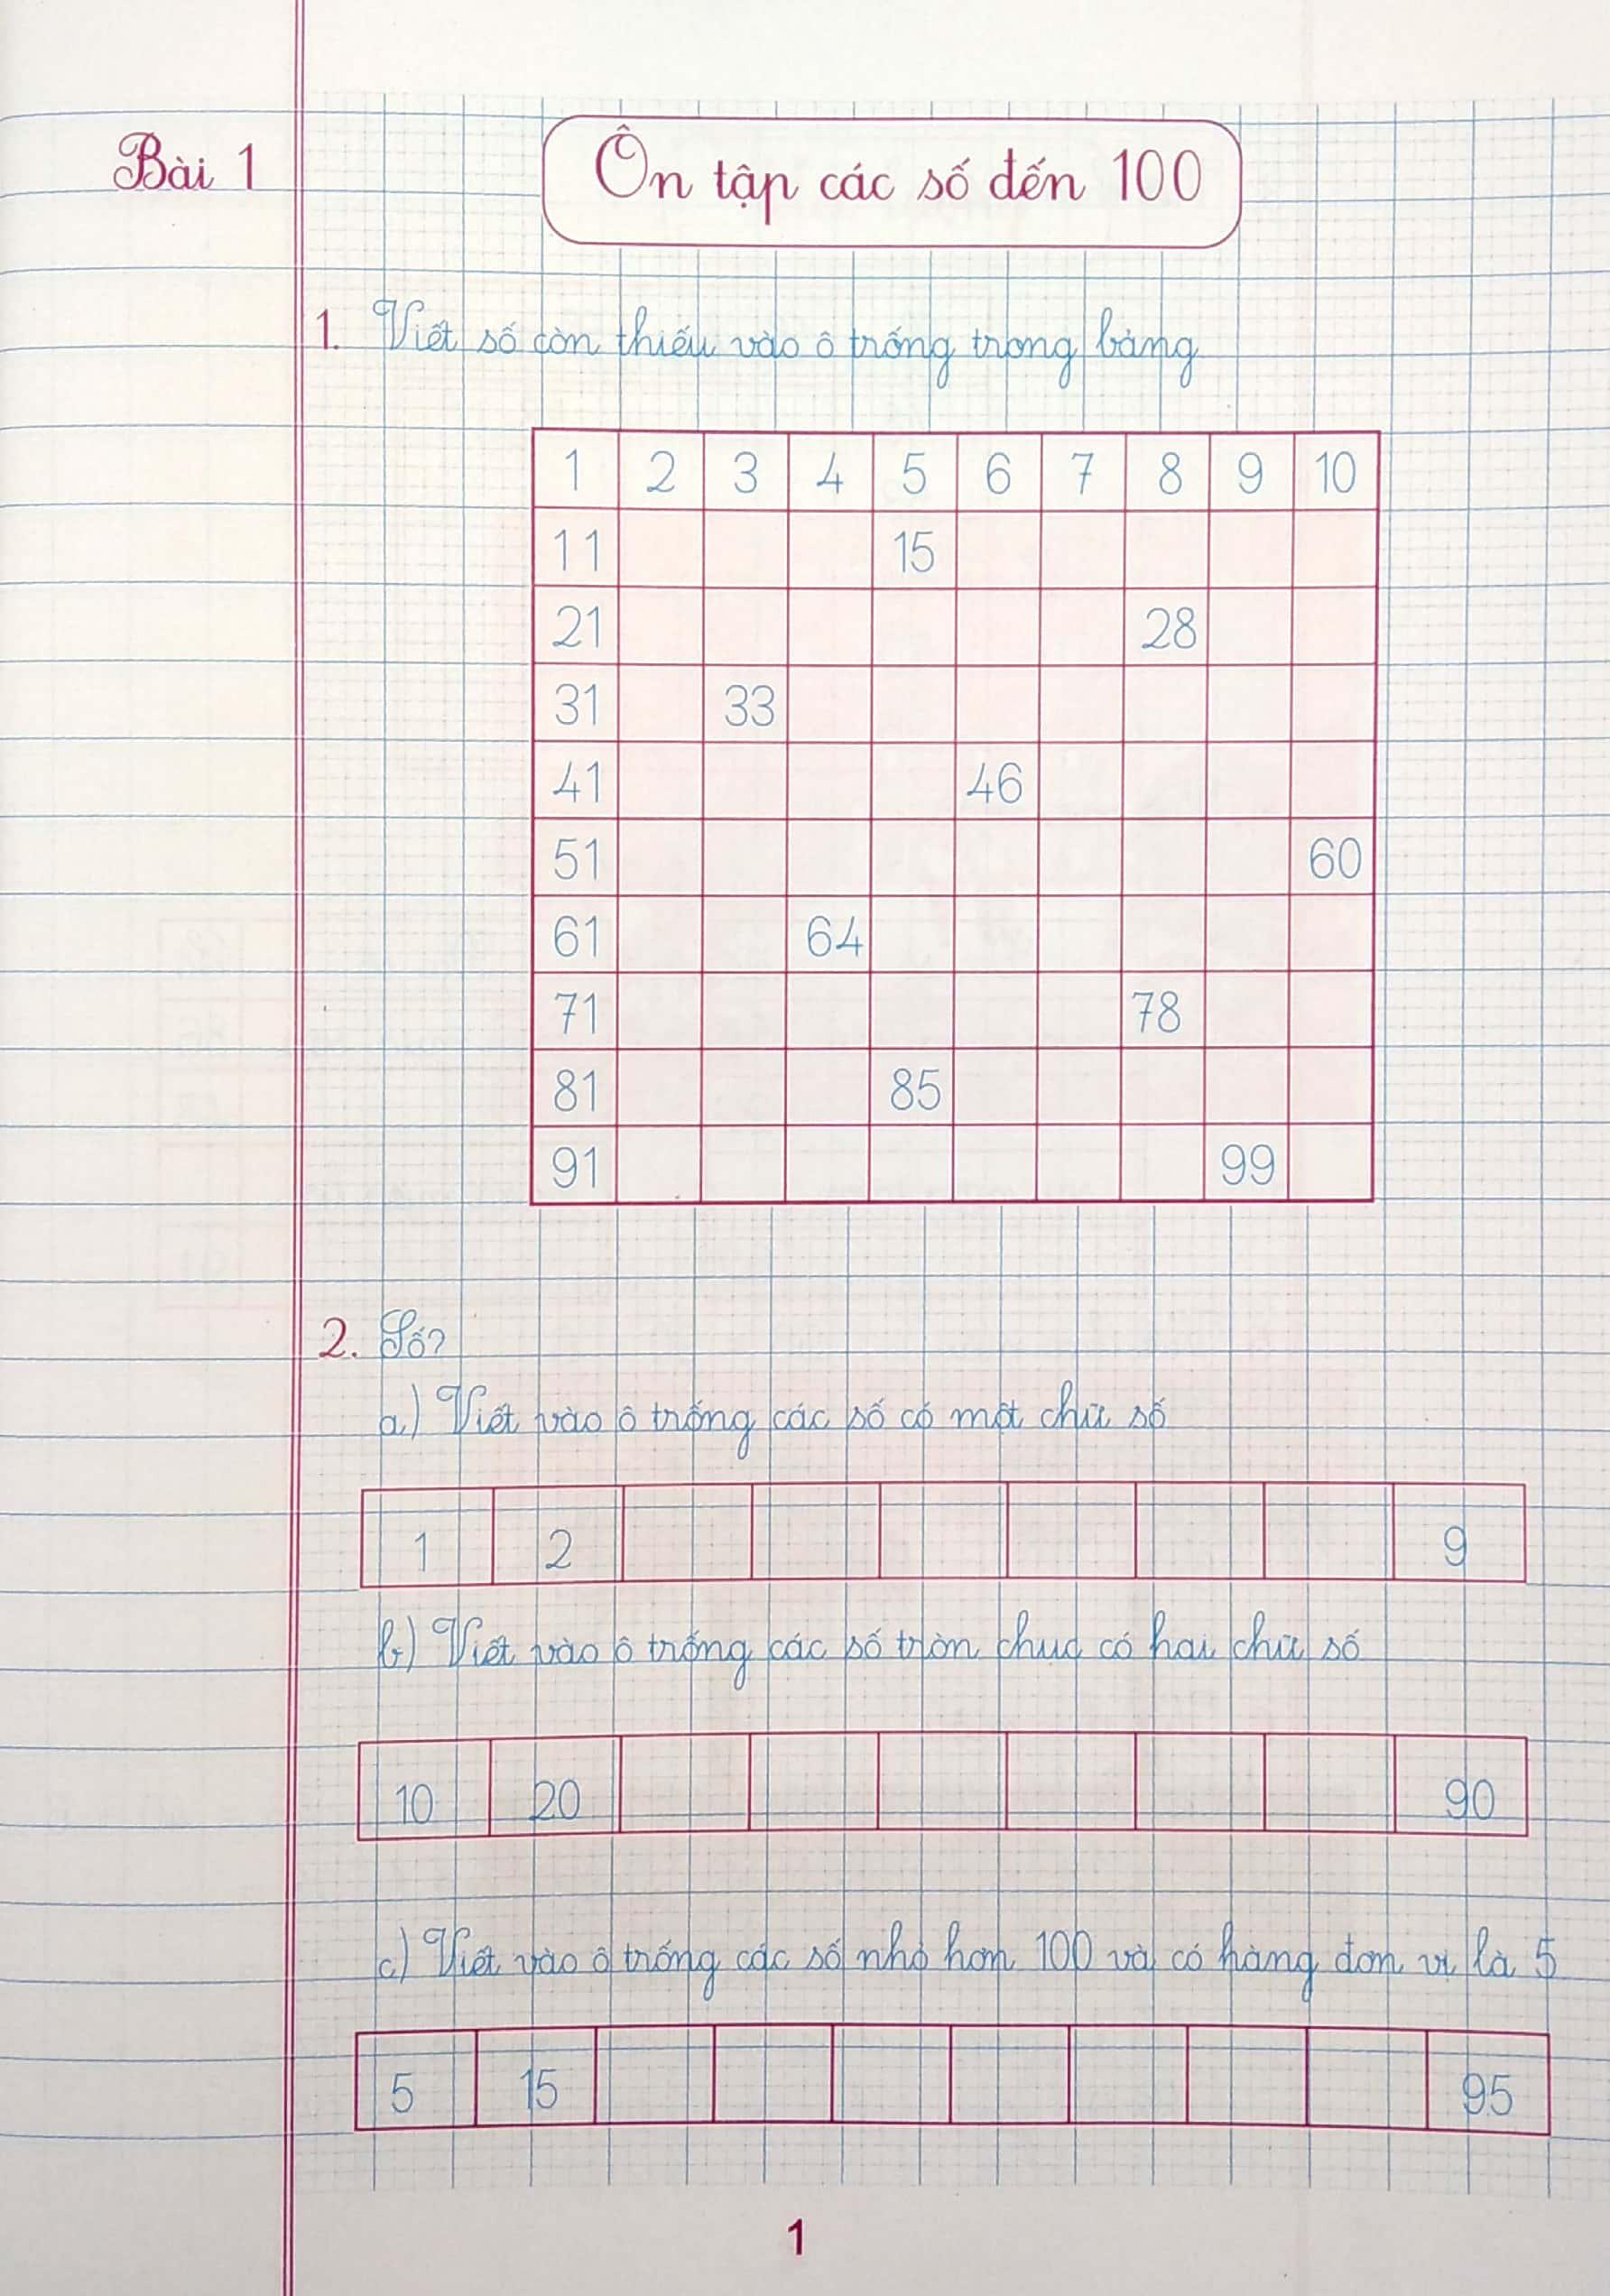 Bài 1
Ôn tập các số đến 100
1. Viết số còn thiếu vào ô trống trong bảng
1 2 3 4 5 6 7 8 9 10
11 15
21 28
31 33
41 46
51 60
61 64
71 78
81 85
91 99
2. Số?
a) Viết vào ô trống các số có một chữ số
1 2 9
b) Viết vào ô trống các số tròn chục có hai chữ số
10 20 90
c) Viết vào ô trống các số nhỏ hơn 100 và có hàng đơn vị là 5
5 15 95
1